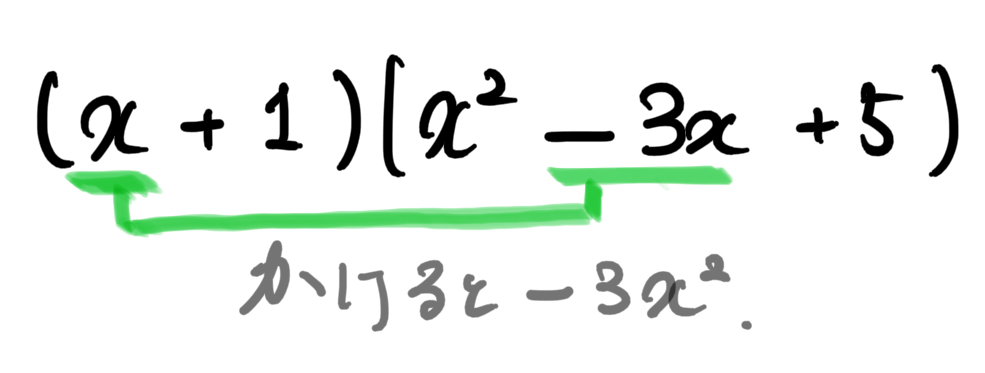 (x + 1)(x² − 3x + 5)
かけると − 3x².